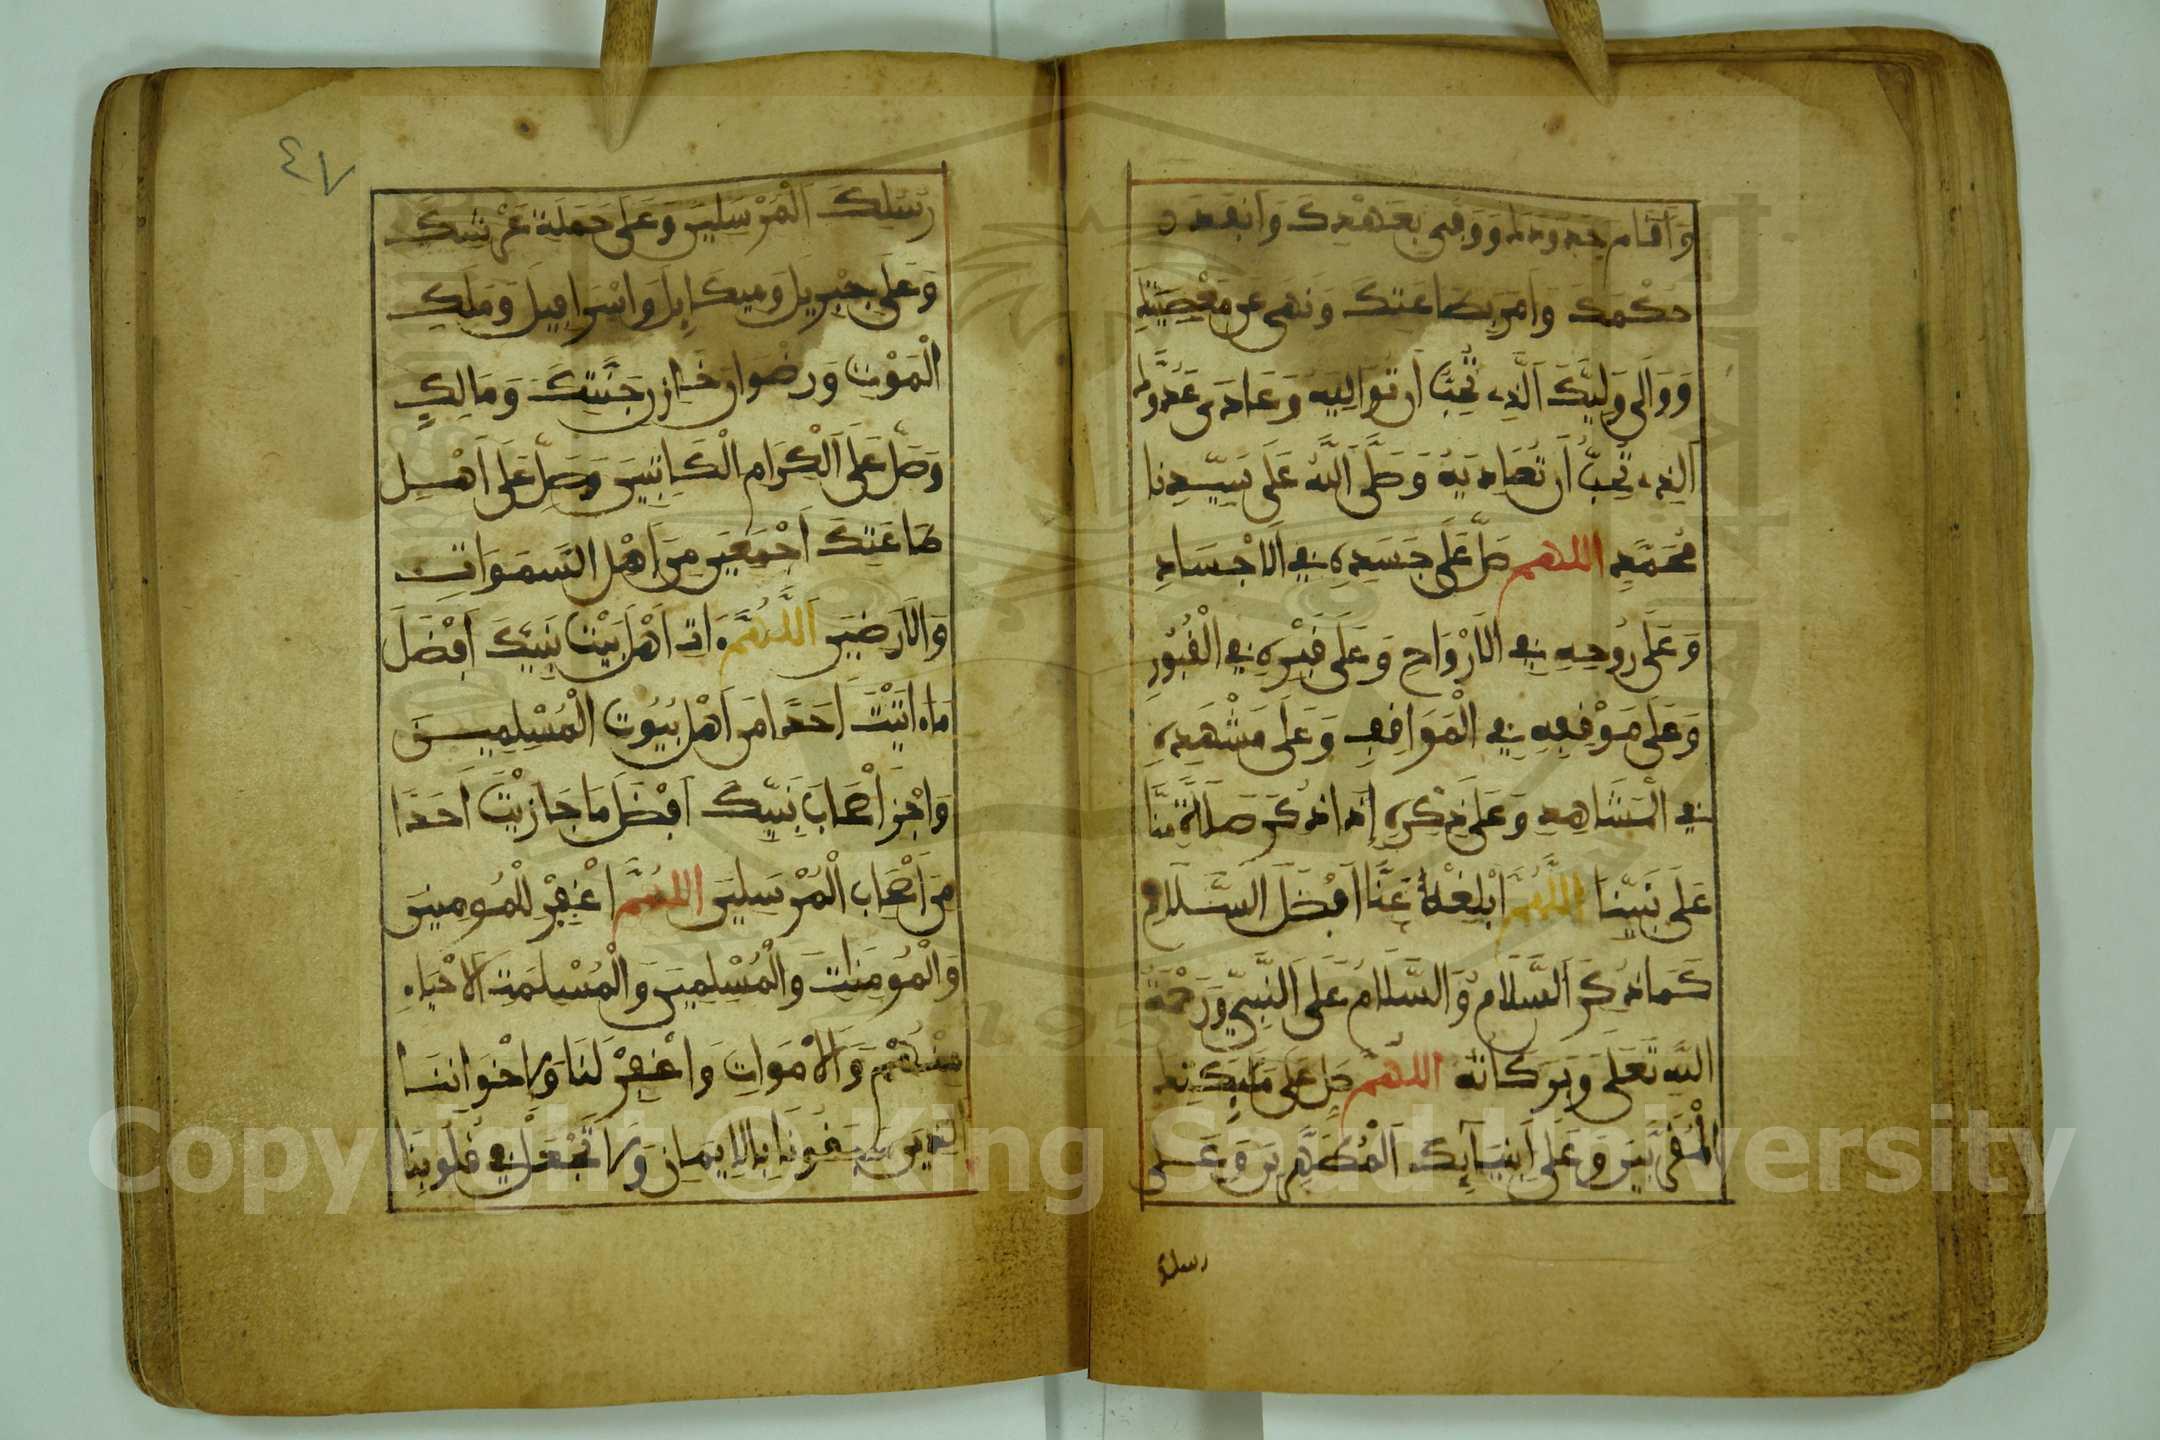 وَأَقَامَ حُدُودَكَ وَوَفَى بِعَهْدِكَ وَأَنْفَذَ
حُكْمَكَ وَأَمَرَ بِطَاعَتِكَ وَنَهَى عَن مَعْصِيَتِكَ
وَوَالَى وَلِيَّكَ الَّذِي تُحِبُّ أَن تُوَالِيَهُ وَعَادَى عَدُوَّكَ
الَّذِي تُحِبُّ أَن تُعَادِيَهُ وَصَلَّى اللَّهُ عَلَى سَيِّدِنَا
مُحَمَّدٍ اللهم صَلِّ عَلَى جَسَدِهِ فِي الَاجْسَادِ
وَعَلَى رُوحِهِ فِي الَارْوَاحِ وَعَلَى قَبْرِهِ فِي الْقُبُورِ
وَعَلَى مَوْقِفِهِ فِي الْمَوَاقِفِ وَعَلَى مَشْهَدِهِ
فِي الْمَشَاهِدِ وَعَلَى ذِكْرِهِ إِذَا ذُكِرَ صَلَاةً مِنَّا
عَلَى نَبِيِّنَا اللَّهُمَّ أَبْلِغْهُ عَنَّا أَفْضَلَ السَّلَامِ
كَمَا ذُكِرَ السَّلَامُ وَالسَّلَامُ عَلَى النَّبِيِّ وَرَحْمَةُ
اللَّهِ تَعَلَى وَبَرَكَاتُهُ اللهم صَلِّ عَلَى مَلَئِكَتِكَ
الْمُقَرَّبِينَ وَعَلَى أَنْبِيَائِكَ الْمُطَهَّرِينَ وَعَلَى
رسلك
٤٧
رُسُلِكَ الْمُرْسَلِينَ وَعَلَى حَمَلَةِ عَرْشِكَ
وَعَلَى جِبْرِيلَ وَمِيكَائِلَ وَإِسْرَافِيلَ وَمَلَكِ
الْمَوْتِ وَرِضْوَانَ خَازِنِ جَنَّتِكَ وَمَالِكٍ
وَصَلِّ عَلَى الْكِرَامِ الْكَاتِبِينَ وَصَلِّ عَلَى أَهْلِ
طَاعَتِكَ أَجْمَعِينَ مِنَ أَهْلِ السَّمَوَاتِ
وَالَارَضِينَ اللَّهُمَّ ءَاتِ أَهْلَ بَيْتِ نَبِيِّكَ أَفْضَلَ
مَا ءَاتَيْتَ أَحَدًا مِنَ أَهْلِ بُيُوتِ الْمُسْلِمِينَ
وَاجْزِ أَصْحَابَ نَبِيِّكَ أَفْضَلَ مَا جَازَيْتَ أَحَدًا
مِنَ أَصْحَابِ الْمُرْسَلِينَ اللهُمَّ اغْفِرْ لِلْمُومِنِينَ
وَالْمُومِنَاتِ وَالْمُسْلِمِينَ وَالْمُسْلِمَتِ الَاحْيَاءِ
مِنْهُمْ وَالَامْوَاتِ وَاغْفِرْ لَنَا وَلِإِخْوَانِنَا
الذِينَ سَبَقُونَا بِالِايمَانِ وَلَا تَجْعَلْ فِي قُلُوبِنَا
Copyright © King Saud University
1957